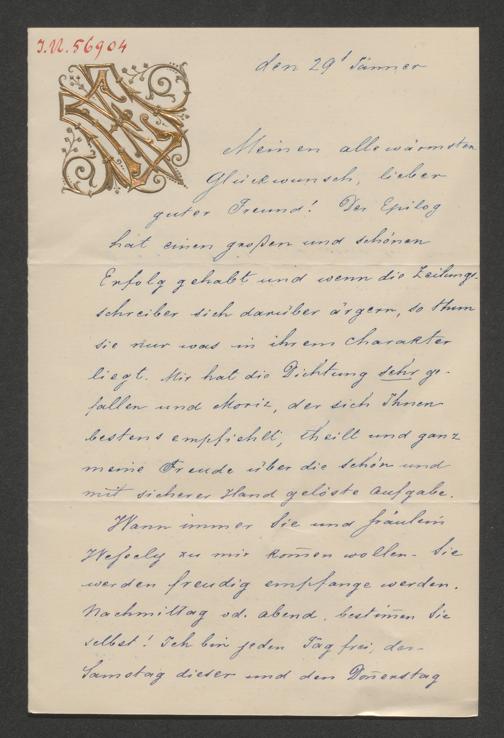 I.N. 56904
den 29t Jänner
Meinen allewärmsten
Glückwunsch, lieber
guter Freund! Der Epilog
hat einen großen und schönen
Erfolg gehabt und wenn die Zeitungs-
schreiber sich darüber ärgern, so thun
sie nur was in ihrem Charakter
liegt. Mir hat die Dichtung sehr ge-
fallen und Moriz, der sich Ihnen
bestens empfiehlt, theilt und ganz
meine Freude über die schön und
mit sicherer Hand gelöste Aufgabe.
Wann immer Sie und Fräulein
Weſsely zu mir kom̄en wollen - Sie
werden freudig empfange werden.
Nachmittag od. abend. bestim̄en Sie
selbst! Ich bin jeden Tag frei, den
Samstag dieser und den Don̄erstag